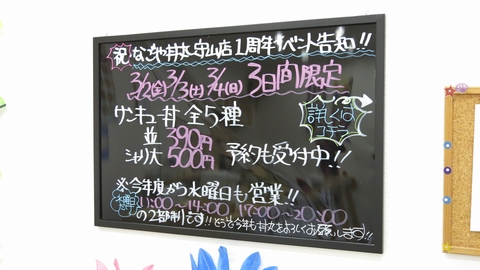 祝 なごや丼丸 守山店1周年イベント告知!!
3/2(金) 3/3(土) 3/4(日) 3日間限定
サンキュー丼 全5種
詳しくはコチラ
並 390円
シャリ大 500円 予約も受付中!!
※今年度から水曜日も営業!!
水曜日 11:00～14:00 17:00～20:00
の2部制です!! どうぞ今年も丼丸をよろしくお願いします!!